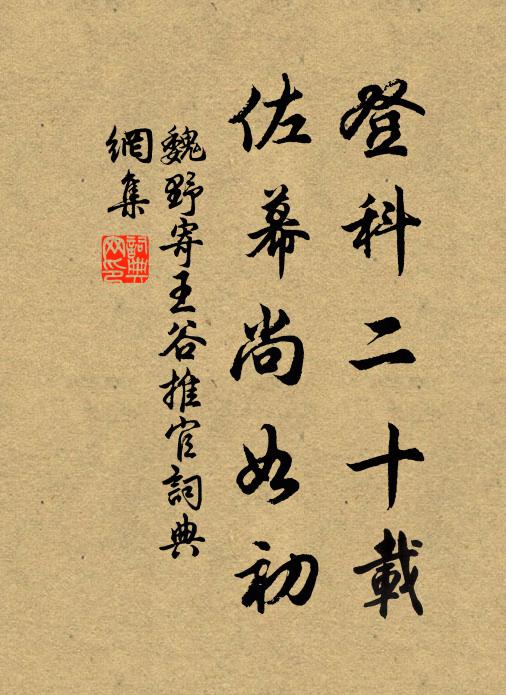 登科二十載
佐幕尚如初
魏野寄王谷推官詞典
網集
詞典
网印